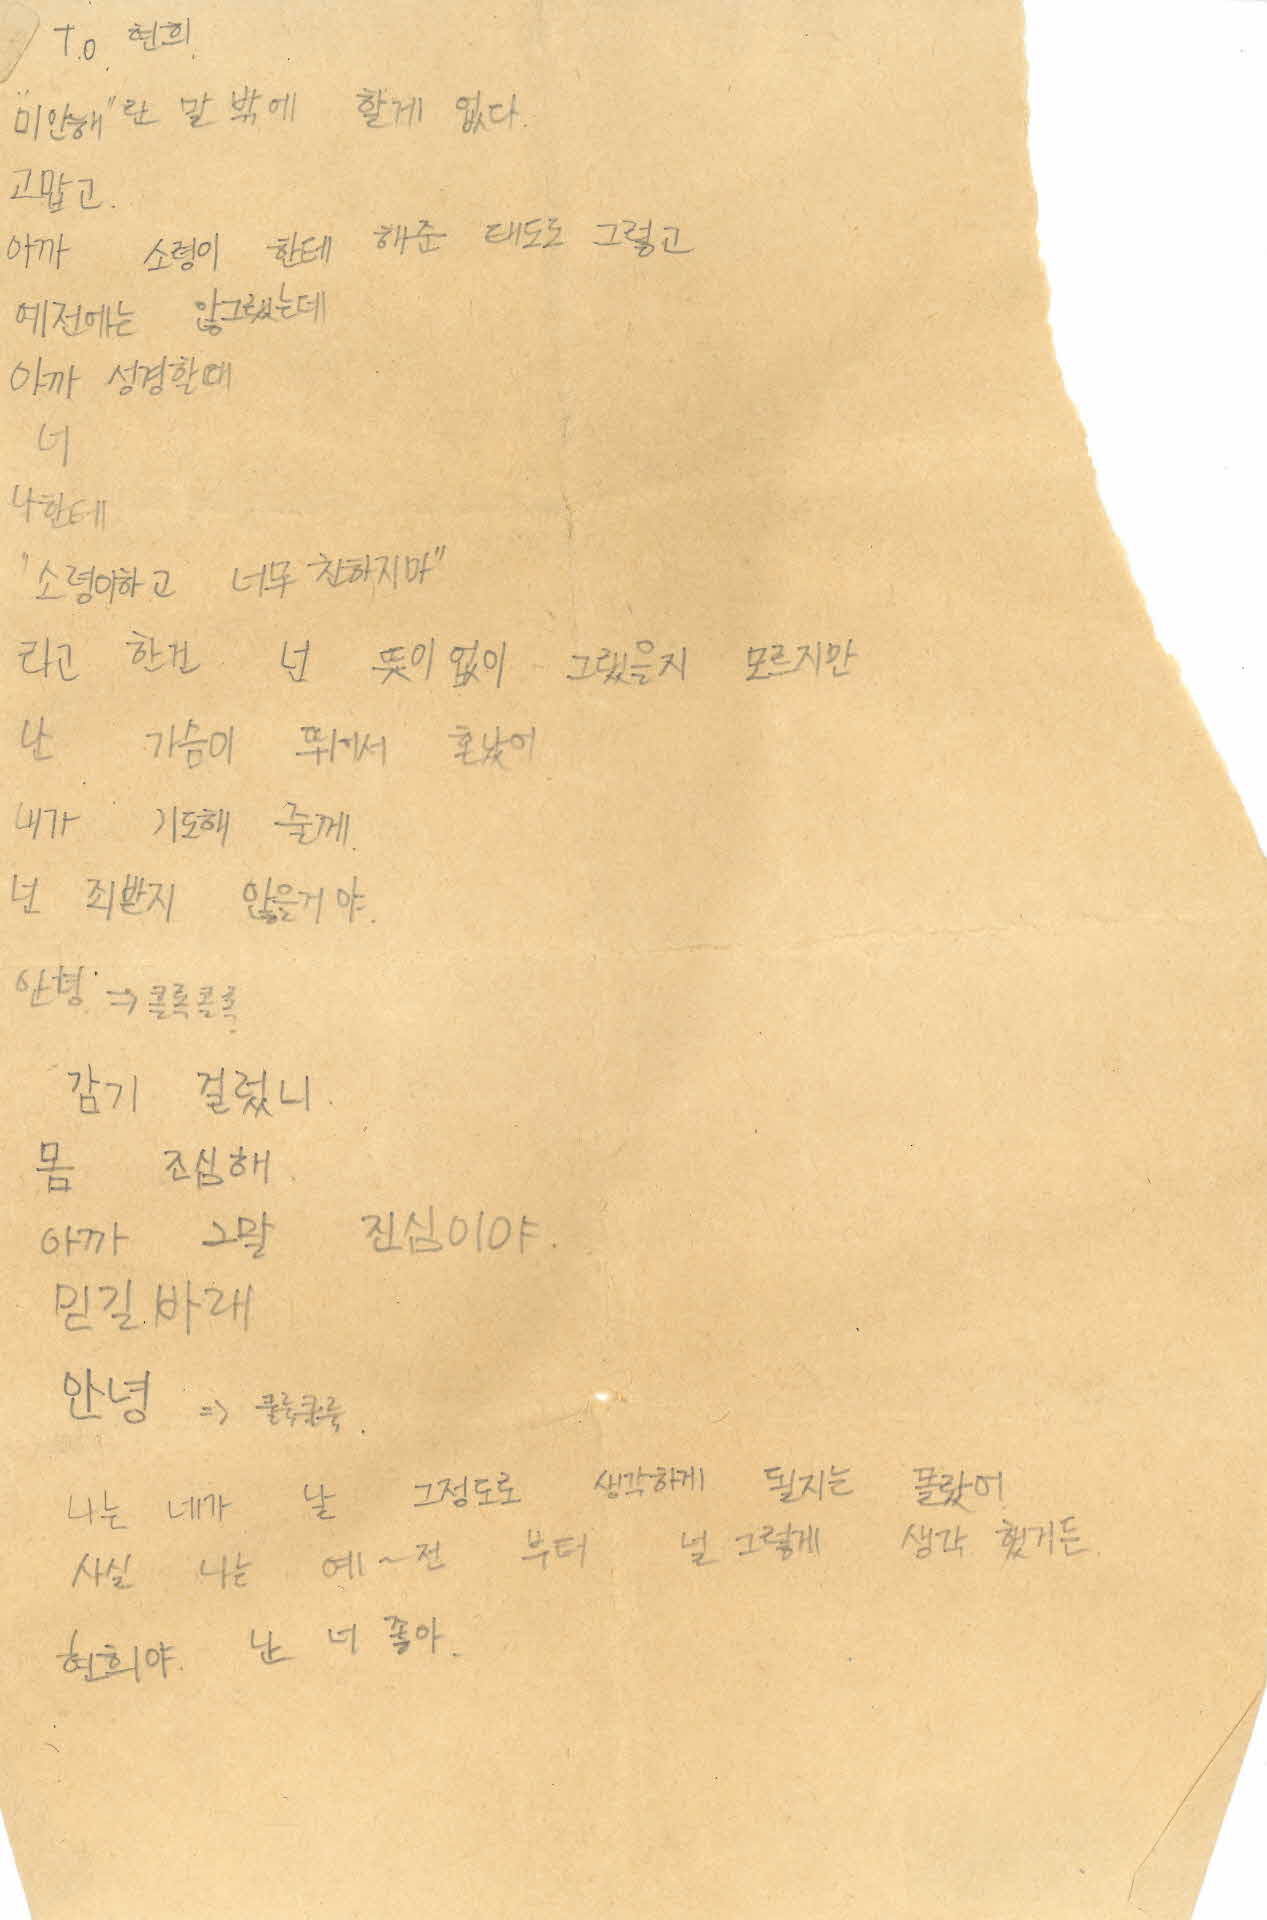 T.O. 현희.
"미안해"란 말 밖에 할게 없다.
고맙고.
아까 소령이 한테 해준 태도도 그렇고
예전에는 않그랬는데
아까 성경할때
너
나한테
"소령이하고 너무 친하지마"
라고 한건 넌 뜻이 없이 그랬을지 모르지만
난 가슴이 뛰어서 혼났어
내가 기도해 줄께.
넌 죄받지 않을거야.
안녕. => 콜록콜록.
감기 걸렸니.
몸 조심해.
아까 그말 진심이야.
믿길 바래
안녕 => 콜록콜록.
나는 네가 날 그정도로 생각하게 될지는 몰랐어
사실 나는 예~전 부터 널 그렇게 생각 했거든.
현희야. 난 너 좋아.